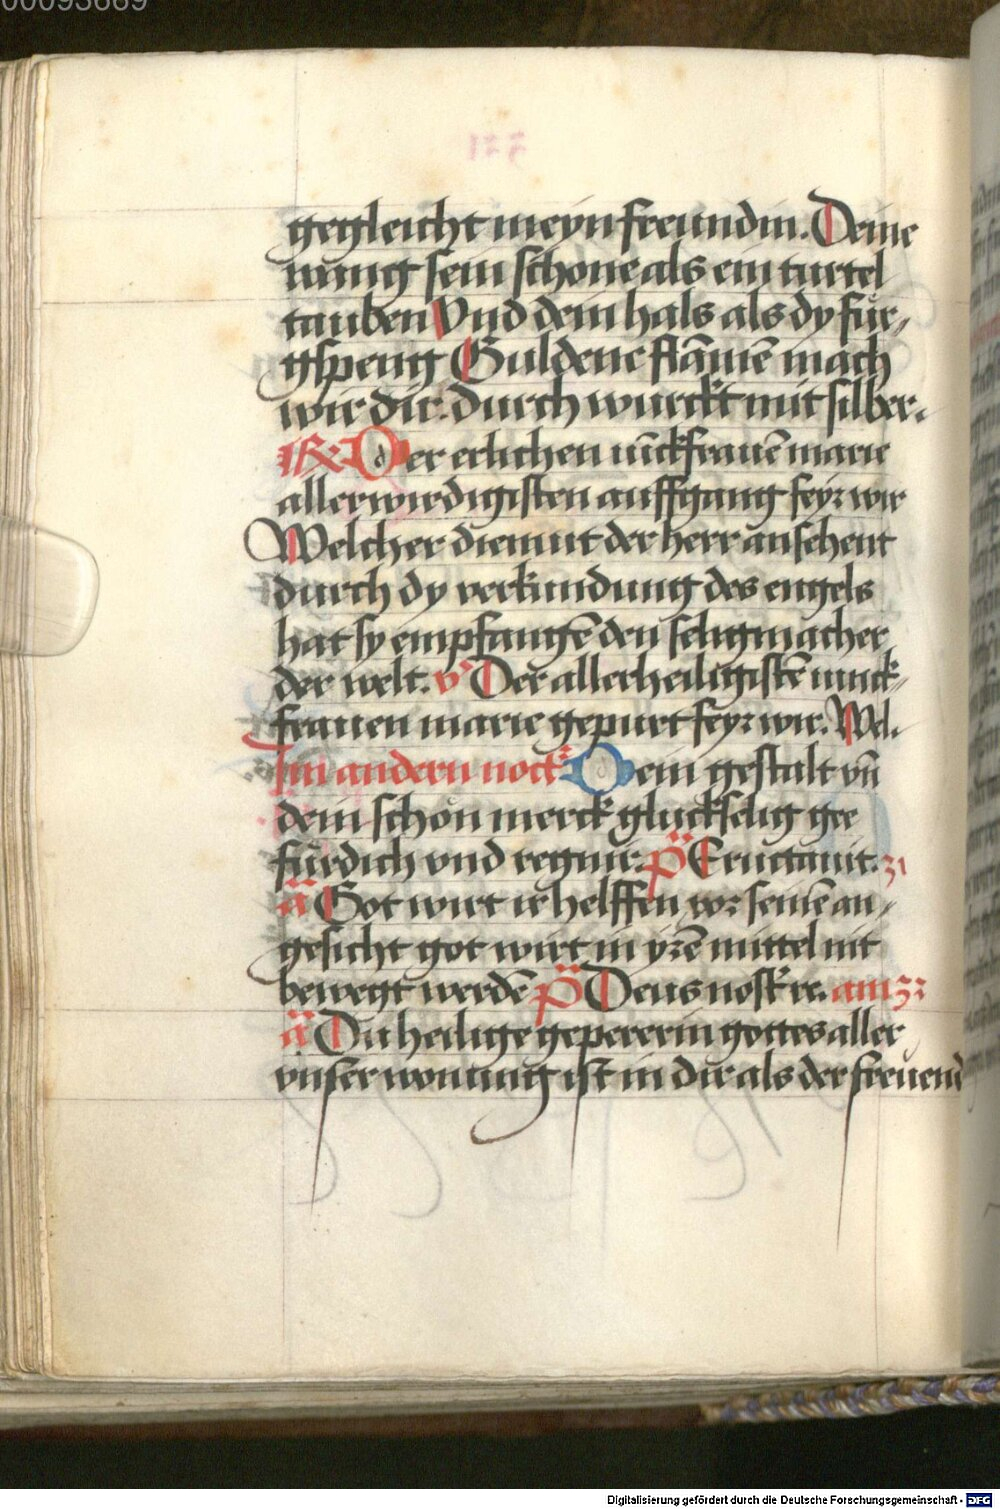 gegleicht meyn freundin. Deine
wung sein schone als ein turtel
tauben Vnd dein hals als dy für-
gspeng Guldene flāmē mach
wir dir. durch wurckt mit silber.
R Der erlichen iūckfrauē marie
allerwirdigisten auffgang feyr wir
Welcher diemut der herr ansehent
durch dy verkundung des engels
hat sy empfangē den seligmacher
der welt. v Der allerheiligistē iunck-
frauen marie gepurt feyr wir. Wel.
Im andern nock Dein gestalt vñ
dein schon merck gluckselig gee
fürdich vnd regnir. p̄ Eructauit. 31
ā Got wirt ir helffen vor seinē an-
gesicht got wirt in yrē mittel nit
bewegt werdē p̄ Deus nost re. am 32
ā Du heilige gepererin gottes aller
vnser wonung ist in dir als der freuend
Digitalisierung gefördert durch die Deutsche Forschungsgemeinschaft - DFG